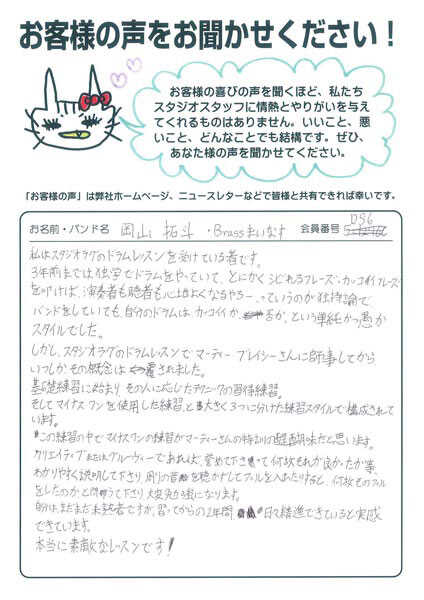 お客様の声をお聞かせください！
お客様の喜びの声を聞くほど、私たち
スタジオスタッフに情熱とやりがいを与え
てくれるものはありません。いいこと、悪
いこと、どんなことでも結構です。ぜひ、
あなた様の声を聞かせてください。
「お客様の声」は弊社ホームページ、ニュースレターなどで皆様と共有できれば幸いです。
お名前・バンド名 岡山 拓斗 ・Brassまいなす 会員番号 DS6
私はスタジオラグのドラムレッスンを受けている者です。
3年前までは独学でドラムをやっていて、とにかくシビれるフレーズ・カッコイイフレーズ
を叩けば、演奏者も聴者も心地よくなるやろー、っていうのが独特論で
バンドをしていても、自分のドラムは、カッコイイか、否か、という単純かつ愚か
スタイルでした。
しかし、スタジオラグのドラムレッスンでマーティー・ブレイシーさんに師事してから
いつしかその概念は 覆されました。
基礎練習に始まり、その人に応じたテクニックの習得練習。
そしてマイナスワンを使用した練習、と大きく3つに分けた練習スタイルで構成されて
います。
この練習の中でマイナスワンの練習がマーティーさんの特訓の醍醐味だと思います。
クリエイティブまたはグルーヴィーであれば、誉めて下さって何故それが良かったか事、
わかりやすく説明して下さり、周りの音を聴かずしてフィルを入れたりすると、何故そのフィル
をしたのかと問うて下さり、大変ためになります。
自分は、まだまだ未熟者ですが、習ってからの2年間、日々精進できていると実感
できています。
本当に素敵なレッスンです！